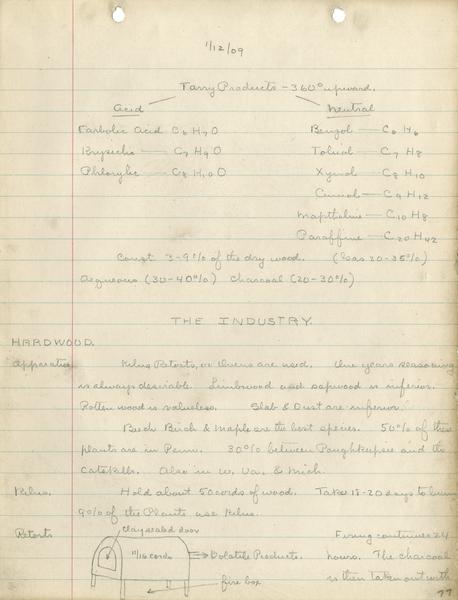 1/12/09
Tarry Products - 360° upward.
Acid Neutral
Karbolic Acid C6 H7 O Benzol — C6 H6
C7 H9 O Toluol — C7 H8
Phlorylic — C8 H10 O Xymol — C8 H10
Cumol — C9 H12
Mapthaline — C10 H8
Paraffine — C20 H42
Const 3-9% of the dry wood. (Gas 20-35%)
Aequeous (30-40%) Charcoal (20-30%)
THE INDUSTRY.
HARDWOOD.
Apparatus. Kilns Retorts, or Ovens are used. One years seasoning
is always desirable. Limbwood and sapwood is inferior.
Rotten wood is valueless. Slab & Dust are inferior.
Beech Birch & Maple are the best species. 50% of the
plants are in Penn. 30% between Poughkeepsie and the
Catskills. Also in W. Va. & Mich.
Kilns. Hold about 50 cords of wood. Takes 15-20 days to burn
9% of the Plants use Kilns.
Retorts clay sealed door Firing continues 24
11/16 cords Volatile Products. hours. The charcoal
is then taken out with
fire box
77